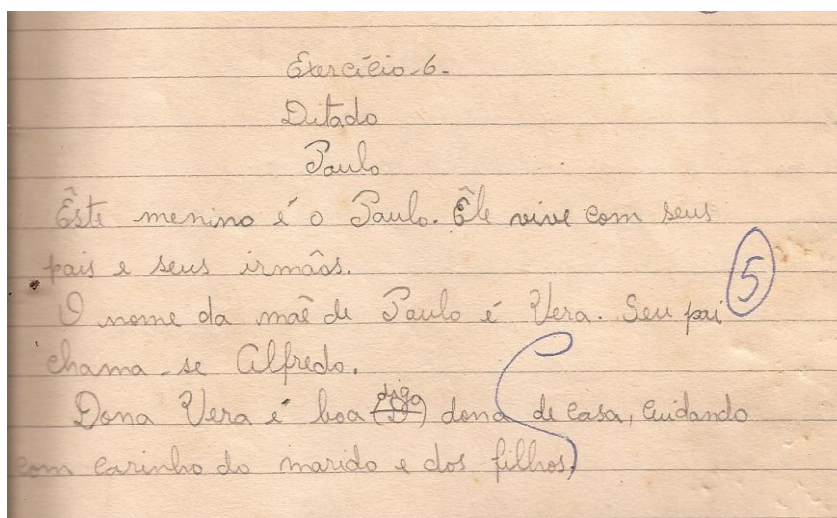 Exercício-6-
Ditado
Paulo
Êste menino é o Paulo. Êle vive com seus
pais e seus irmãos.
5
O nome da mãe de Paulo é Vera. Seu pai
chama-se Alfredo.
Dona Vera é boa dona de casa, cuidando
com carinho do marido e dos filhos.